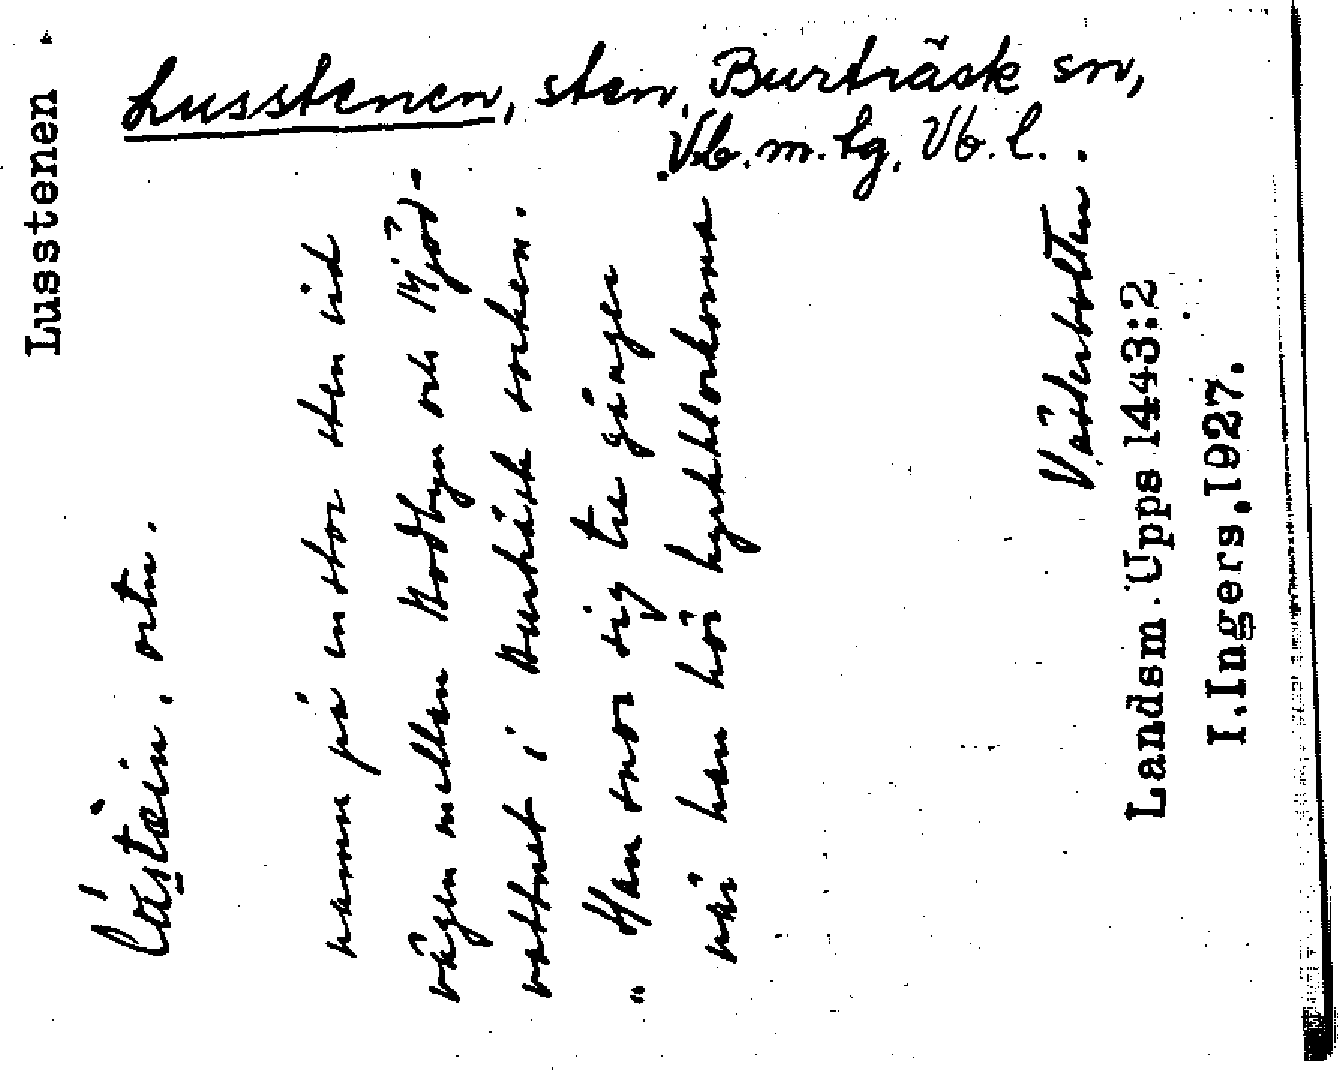 Lusstenen, sten, Burträsk sn,
Vb. m. lg, Vb. l.
Lusstenen
ortn.
namn på en stor sten vid
vägen mellan Bodbyn och Mjöd-
vattnet i Burträsk socken.
"Han snor sig tre gånger
när han hör kyrkklockorna
Västerbotten.
Landsm. Upps 1443:2
I. Ingers, 1927.